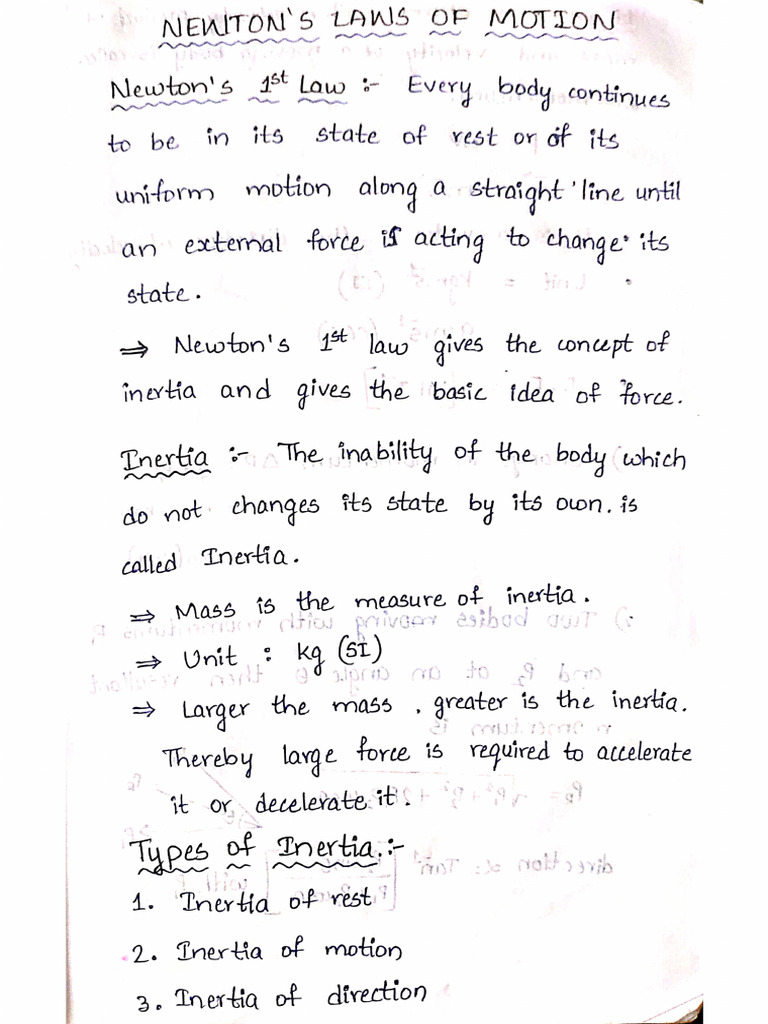 NEWTON'S LAWS OF MOTION
Newton's 1st Law :- Every body continues
to be in its state of rest or of its
uniform motion along a straight line until
an external force is acting to change its
state.
⇒ Newton's 1st law gives the concept of
inertia and gives the basic idea of force.
Inertia :- The inability of the body which
do not changes its state by its own. is
called Inertia.
⇒ Mass is the measure of inertia.
⇒ Unit : kg (SI)
⇒ Larger the mass , greater is the inertia.
Thereby large force is required to accelerate
it or decelerate it.
Types of Inertia :-
1. Inertia of rest
2. Inertia of motion
3. Inertia of direction